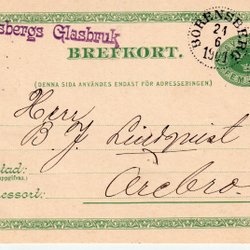 sbergs Glasbruk
BREFKORT.
(DENNA SIDA ANVÄNDES ENDAST FÖR ADRESSERINGEN.)
21
6
Herr
B. J. Lindqvist
stad:
Örebro
dressort: